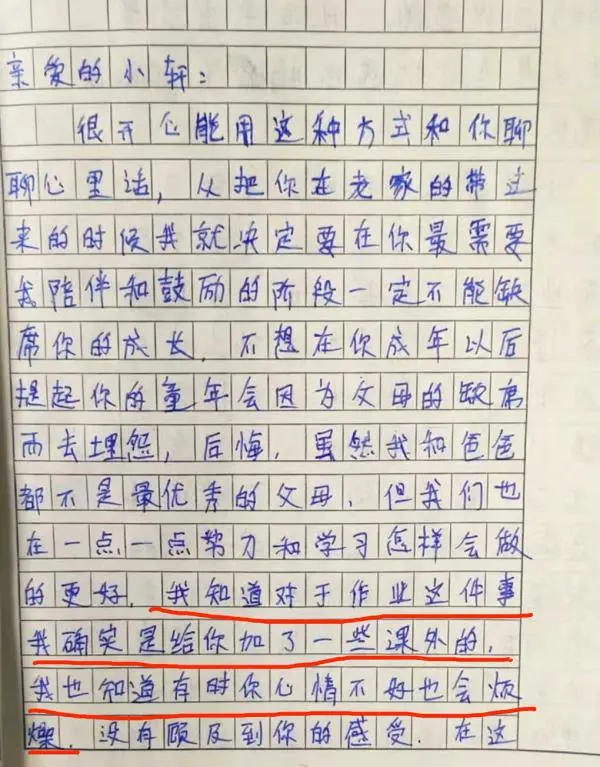 亲爱的小轩:
很开心能用这种方式和你聊
聊心里话, 从把你在老家的带过
来的时候我就决定要在你最需要
我陪伴和鼓励的阶段一定不能缺
席你的成长. 不想在你成年以后
提起你的童年会因为父母的缺席
而去埋怨, 后悔, 虽然我和爸爸
都不是最优秀的父母, 但我们也
在一点一点努力和学习怎样会做
的更好. 我知道对于作业这件事
我确实是给你加了一些课外的,
我也知道有时你心情不好也会烦
燥. 没有顾及到你的感受. 在这